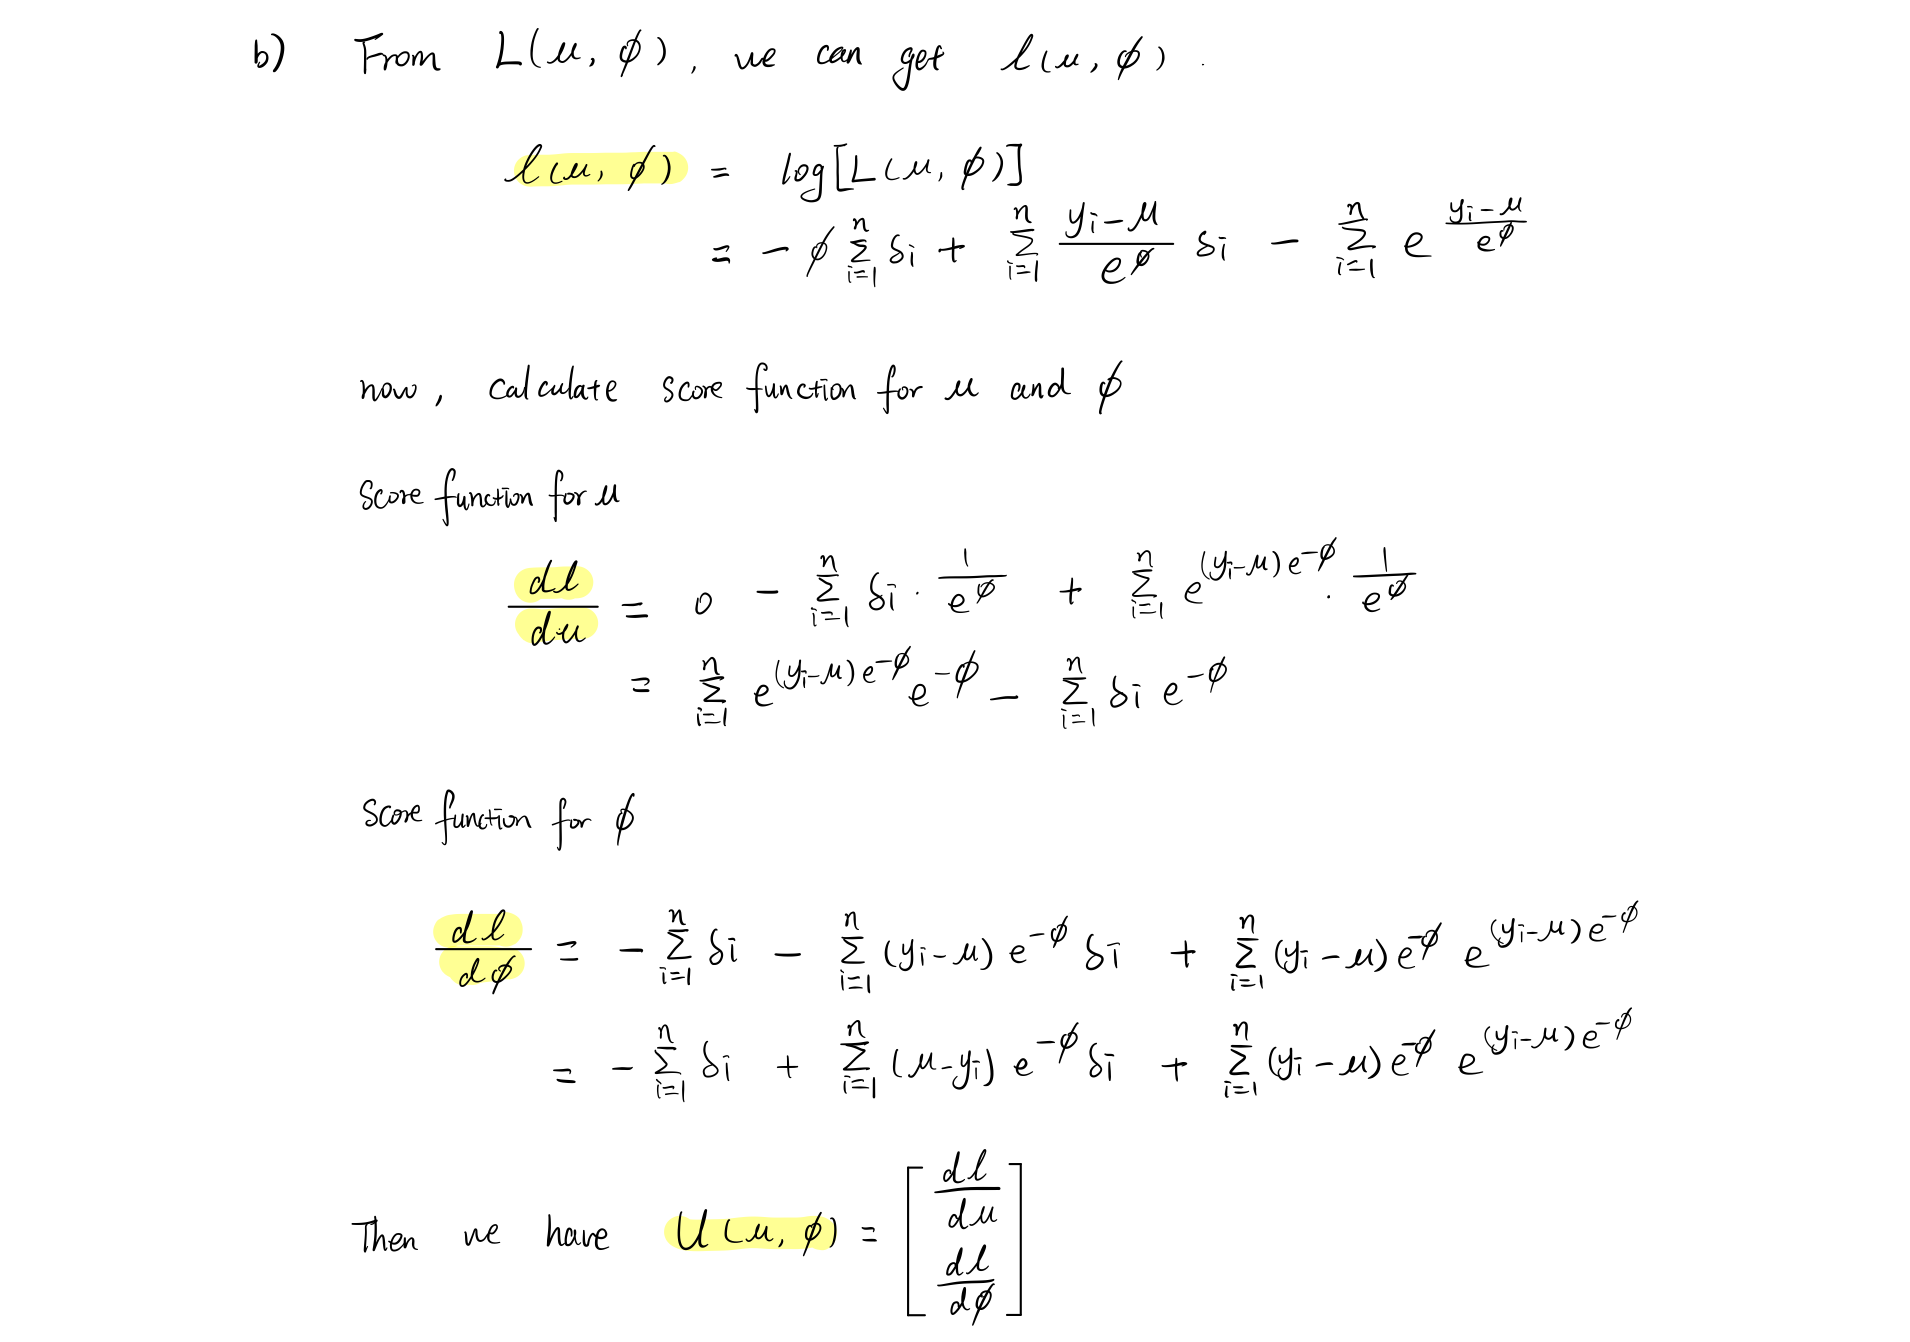 b) From L(μ, ϕ), we can get l(μ, ϕ).
l(μ, ϕ) = log[L(μ, ϕ)]
= - ϕ \sum_{i=1}^{n} δi + \sum_{i=1}^{n} \frac{yi-μ}{e^ϕ} δi - \sum_{i=1}^{n} e^{\frac{yi-μ}{e^ϕ}}
now, calculate score function for μ and ϕ
Score function for μ
\frac{dl}{dμ} = 0 - \sum_{i=1}^{n} δi · \frac{1}{e^ϕ} + \sum_{i=1}^{n} e^{(yi-μ)e^{-ϕ}} · \frac{1}{e^ϕ}
= \sum_{i=1}^{n} e^{(yi-μ)e^{-ϕ}} e^{-ϕ} - \sum_{i=1}^{n} δi e^{-ϕ}
Score function for ϕ
\frac{dl}{dϕ} = - \sum_{i=1}^{n} δi - \sum_{i=1}^{n} (yi-μ) e^{-ϕ} δi + \sum_{i=1}^{n} (yi-μ) e^{-ϕ} e^{(yi-μ)e^{-ϕ}}
= - \sum_{i=1}^{n} δi + \sum_{i=1}^{n} (μ-yi) e^{-ϕ} δi + \sum_{i=1}^{n} (yi-μ) e^{-ϕ} e^{(yi-μ)e^{-ϕ}}
Then we have U(μ, ϕ) = [ \frac{dl}{dμ} \frac{dl}{dϕ} ]